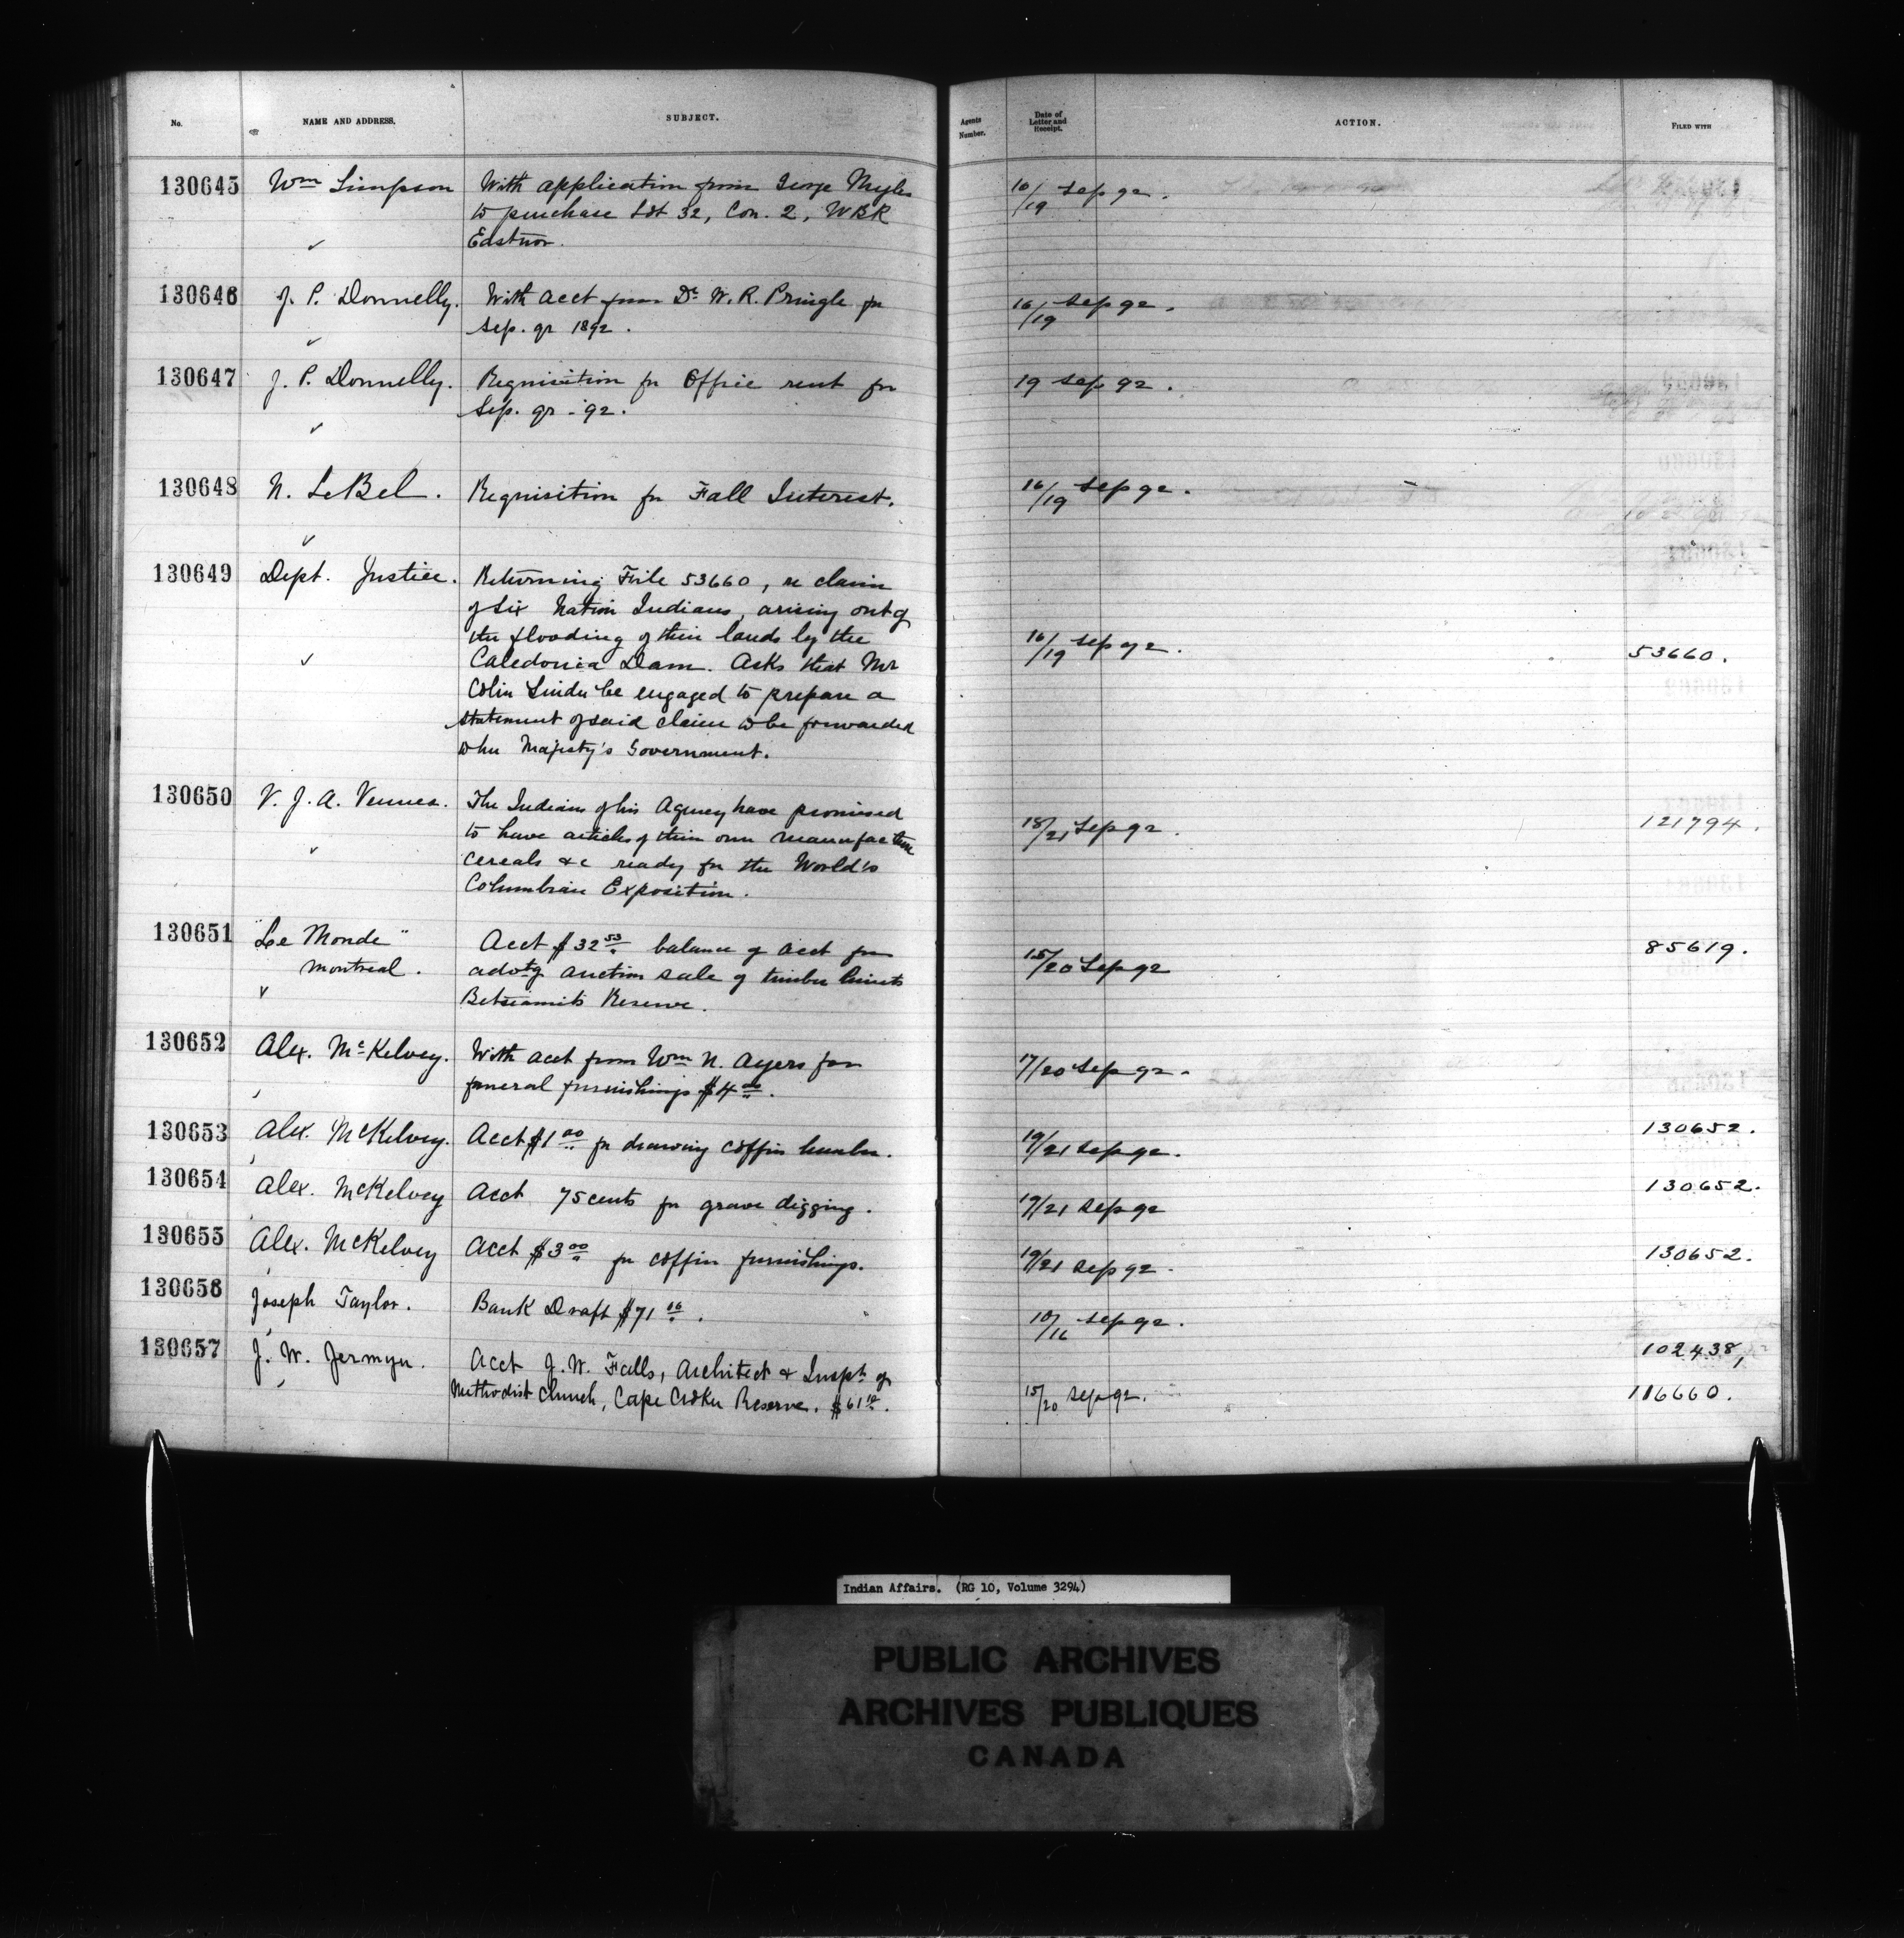 No. NAME AND ADDRESS. SUBJECT. Agents Number. Date of Letter and Receipt. ACTION. FILED WITH
130645 Wm Simpson With application from George Myles 10/19 Sep 92.
to purchase Lot 32, Con. 2, WBR
Eastnor.
130646 J. P. Donnelly. With acct from Dr W. R. Pringle for 16/19 Sep 92.
Sep. qr 1892.
130647 J. P. Donnelly. Requisition for Office rent for 19 Sep 92.
Sep. qr - 92.
130648 N. LeBel. Requisition for Fall Interest. 16/19 Sep 92.
130649 Dept. Justice. Returning File 53660, re claim
of Six Nation Indians, arising out of
the flooding of their lands by the 16/19 Sep 92. 53660.
Caledonia Dam. Asks that Mr
Colin be engaged to prepare a
statement of said claim to be forwarded
to her Majesty's Government.
130650 V. J. A. Vennes. The Indians of his Agency have promised 18/21 Sep 92. 121794.
to have articles of their own manufacture
cereals &c ready for the World's
Columbian Exposition.
130651 "Le Monde" Acct $32 53 balance of acct for 15/20 Sep 92 85619.
Montreal. advtg auction sale of timber limits
Betsiamits Reserve.
130652 Alex. McKelvey. With acct from Wm N. Ayers for 17/20 Sep 92.
funeral furnishings $4 00.
130653 Alex. McKelvey. Acct $1 00 for drawing coffin lumber. 19/21 Sep 92. 130652.
130654 Alex. McKelvey Acct 75 cents for grave digging. 19/21 Sep 92 130652.
130655 Alex. McKelvey Acct $3 00 for coffin furnishings. 19/21 Sep 92. 130652.
130656 Joseph Taylor. Bank Draft $71 16. 10/16 Sep 92.
130657 J. W. Jermyn. Acct J. W. Falls, Architect & Inspt. of 102438,
Methodist Church, Cape Croker Reserve. $61 10. 15/20 Sep 92. 116660.
Indian Affairs. (RG 10, Volume 3294)
PUBLIC ARCHIVES
ARCHIVES PUBLIQUES
CANADA